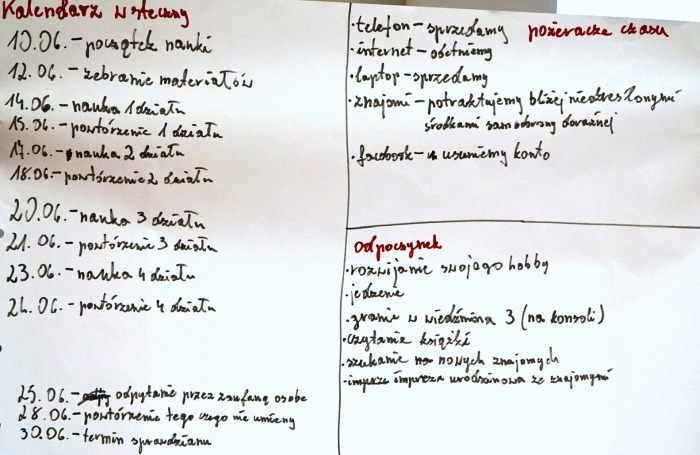 Kalendarz wsteczny
10.06.-początek nauki
12.06.-zebranie materiałów
14.06.-nauka 1 działu
15.06.-powtórzenie 1 działu
17.06.-nauka 2 działu
18.06-powtórzenie 2 działu
20.06.-nauka 3 działu
21.06.-powtórzenie 3 działu
23.06.-nauka 4 działu
24.06.-powtórzenie 4 działu
25.06.- odpytanie przez zaufaną osobe
28.06.-powtórzenie tego czego nie umiemy
30.06.-termin sprawdzianu
pożeracze czasu
·telefon-sprzedamy
·internet-odetniemy
·laptop-sprzedamy
·znajomi-potraktujemy bliżej nieokreślonymi
środkami samoobrony doraźnej
·facebook-usuniemy konto
Odpoczynek
·rozwijanie swojego hobby
·jedzenie
·granie w wiedźmina 3 (na konsoli)
·czytanie książki
·szukanie nowych znajomych
·impreza urodzinowa ze znajomymi